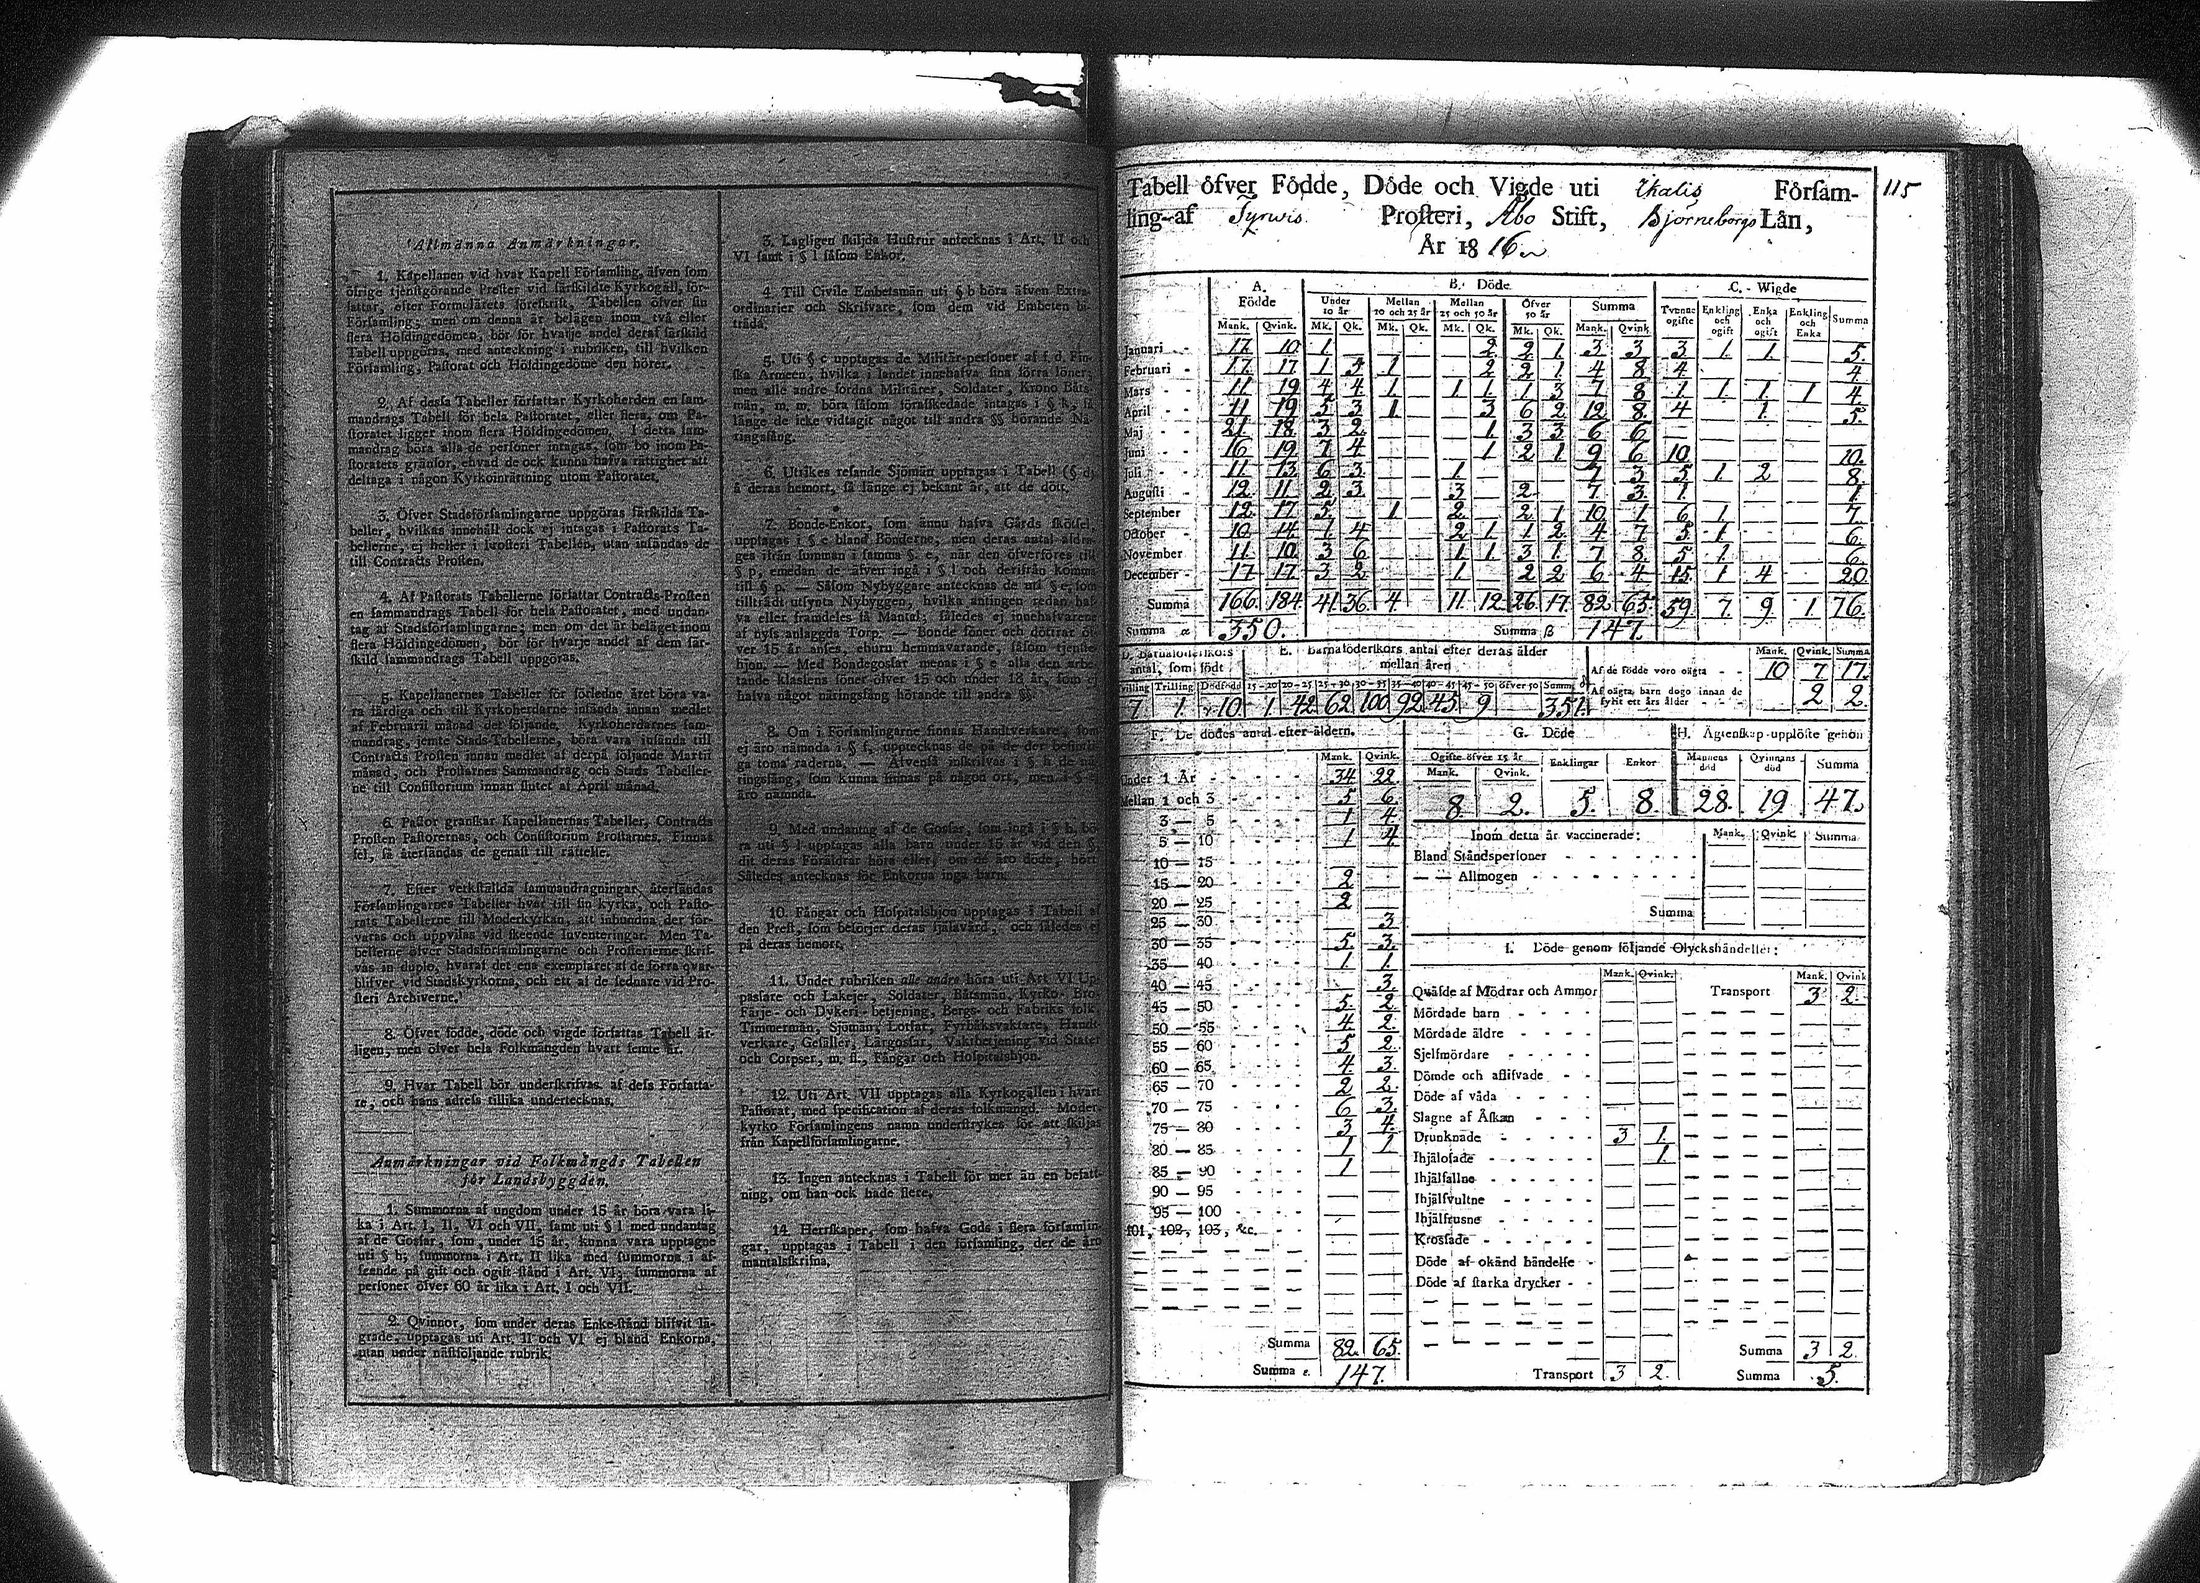 Allmänna Anmärkningar.
1. Kapellanen vid hvar Kapell Församling, äfven som
öfrige tjenstgörande Prester vid särskildte Kyrkogäll, för-
fattar, efter Formulärets föreskrift, Tabellen öfver sin
Församling; men om denna är belägen inom två eller
flera Höfdingedömen, bör för hvarje andel deraf särskild
Tabell uppgöras, med anteckning i rubriken, till hvilken
Församling, Pastorat och Höfdingedöme den hörer.
2. Af dessa Tabeller författar Kyrkoherden en sam-
mandrags Tabell för hela Pastoratet, eller flera, om Pa-
storatet ligger inom flera Höfdingedömen. I detta sam-
mandrag böra alla de personer intagas, som bo inom Pa-
storatets gränsor, ehvad de ock kunna hafva rättighet att
deltaga i någon Kyrkoinrättning utom Pastoratet.
3. Öfver Stadsförsamlingarne uppgöras särskilda Ta-
beller, hvilkas innehåll dock ej intagas i Pastorats Ta-
bellerne, ej heller i Prosteri Tabellen, utan insändas de
till Contracts Prosten.
4. Af Pastorats Tabellerne författar Contracts-Prosten
en sammandrags Tabell för hela Pastoratet, med undan-
tag af Stadsförsamlingarne; men om det är beläget inom
flera Höfdingedömen, bör för hvarje andel af dem sär-
skild sammandrags Tabell uppgöras.
5. Kapellanernes Tabeller för förledne året böra va-
ra färdiga och till Kyrkoherden insända innan medlet
af Februarii månad det följande. Kyrkoherdarnes sam-
mandrag, jemte Stads-Tabellerne, böra vara insända till
Contracts Prosten innan medlet af derpå följande Martii
månad, och Prostarnes Sammandrag och Stads Tabeller-
ne till Consistorium innan slutet af April månad.
6. Pastor granskar Kapellanernas Tabeller, Contracts
Prosten Pastorernas, och Consistorium Prostarnes. Finnas
fel, så återsändas de genast till rättelse.
7. Efter verkställda sammandragningar, återsändas
Församlingarnes Tabeller hvar till sin kyrka, och Pasto-
rats Tabellerne till Moderkyrkan, att inbundna der för-
varas och uppvisas vid skeende Inventeringar. Men Ta-
bellerne öfver Stadsförsamlingarne och Prosterierne skrif-
vas in duplo, hvaraf det ena exemplaret af de förra qvar-
blifver vid Stadskyrkorna, och ett af de sednare vid Pro-
steri Archiverne.
8. Öfver födde, döde och vigde författas Tabell år-
ligen, men öfver hela Folkmängden hvart femte år.
9. Hvar Tabell bör underskrifvas af dess Författa-
re, och hans adress tillika undertecknas.
Anmärkningar vid Folkmängds Tabellen
för Landsbyggden.
1. Summorna af ungdom under 15 år böra vara li-
ka i Art. I, II, VI och VII, samt uti § l med undantag
af de Gossar, som, under 15 år, kunna vara upptagne
uti § h; summorna i Art. II lika med summorna i af-
seende på gift och ogift stånd i Art. VI; summorna af
personer öfver 60 år lika i Art. I och VII.
2. Qvinnor, som under deras Enke-stånd blifvit lä-
grade, upptagas uti Art. II och VI ej bland Enkorna,
utan under nästföljande rubrik.
3. Lagligen skiljda Hustrur antecknas i Art. II och
VI samt i § l såsom Enkor.
4. Till Civile Embetsmän uti § b böra äfven Extra-
ordinarier och Skrifvare, som dem vid Embeten bi-
träda.
5. Uti § c upptagas de Militär-personer af f. d. Fin-
ska Armeen, hvilka i landet innehafva sina förra löner;
men alle andre fordna Militärer, Soldater, Krono Båts-
män, m. m. böra såsom förafskedade intagas i § k, så
länge de icke vidtagit något till andra §§ hörande Nä-
ringsfång.
6. Utrikes resande Sjömän upptagas i Tabell (§ d)
å deras hemort, så länge ej bekant är, att de dött.
7. Bonde-Enkor, som ännu hafva Gårds skötsel,
upptagas i § e bland Bönderne, men deras antal afdra-
ges ifrån summan i samma § e, när den öfverföres till
§ p, emedan de äfven ingå i § l och derifrån komma
till § p. — Såsom Nybyggare antecknas de uti § e, som
tilltrådt utsynta Nybyggen, hvilka antingen redan haf-
va eller framdeles få Mantal; således ej innehafvarene
af nyss anlaggda Torp. — Bonde söner och döttrar öf-
ver 15 år anses, ehuru hemmavarande, såsom tjenste-
hjon. — Med Bondegossar menas i § e alla den arbe-
tande klassens söner öfver 15 och under 18 år, som ej
hafva något näringsfång hörande till andra §§.
8. Om i Församlingarne finnas Handtverkare, som
ej äro nämnda i § f, upptecknas de på de der befintli-
ga toma raderna. — Äfvenså inskrifvas i § h de nä-
ringsfång, som kunna finnas på någon ort, men i § ej
äro nämnda.
9. Med undantag af de Gossar, som ingå i § h, bö-
ra uti § l upptagas alla barn under 15 år vid den §,
dit deras Föräldrar höra eller, om de äro döde, hört.
Således antecknas för Enkorna inga barn.
10. Fångar och Hospitalshjon upptagas i Tabell af
den Prest, som besörjer deras själavård, och således ej
på deras hemort.
11. Under rubriken alle andre böra uti Art VI Up-
passare och Lakejer, Soldater, Båtsmän, Kyrko- Bro-
Färje- och Dykeri- betjening, Bergs- och Fabriks folk,
Timmermän, Sjömän, Lotsar, Fyrbåksvaktare, Handt-
verkare, Gesäller, Lärgossar, Vaktbetjening vid Stater
och Corpser, m. fl., Fångar och Hospitalshjon.
12. Uti Art. VII upptagas alla Kyrkogällen i hvart
Pastorat, med specification af deras folkmängd. Moder-
kyrko Församlingens namn understrykes för att skiljas
från Kapellförsamlingarne.
13. Ingen antecknas i Tabell för mer än en befatt-
ning, om han ock hade flere.
14. Herrskaper, som hafva Gods i flera församlin-
gar, upptagas i Tabell i den församling, der de äro
mantalsskrifna.
Tabell öfver Födde, Döde och Vigde uti Ikalis Försam- 115
ling af Tyrwis Prosteri, Åbo Stift, Bjorneborgs Län,
År 1816
A. Födde B. Döde C. Wigde
Under 10 år Mellan 10 och 25 år Mellan 25 och 50 år Öfver 50 år Summa Tvenne ogifte Enkling och ogift Enka och ogift Enkling och Enka Summa
Mank. Qvink. Mk. Qk. Mk. Qk. Mk. Qk. Mk. Qk. Mank. Qvink.
Januari 17 10 1 2 2 1 3 3 3 1 1 5
Februari 17 17 1 5 1 2 2 1 4 8 4 4
Mars 11 19 4 4 1 1 1 1 3 7 8 1 1 1 1 4
April 11 19 5 3 1 3 6 2 12 8 4 1 5
Maj 21 18 3 2 1 3 3 6 6
Juni 16 19 7 4 1 2 1 9 6 10 10
Juli 11 13 6 3 1 7 3 5 1 2 8
Augusti 12 11 2 3 3 2 7 3 1 1
September 12 17 5 1 2 2 1 10 1 6 1 7
October 10 14 1 4 2 1 1 2 4 7 5 1 6
November 11 10 3 6 1 1 3 1 7 8 5 1 6
December 17 17 3 2 1 2 2 6 4 15 1 4 20
Summa 166 184 41 36 4 11 12 26 17 82 65 59 7 9 1 76
Summa α 350. Summa β 147.
D. Barnaföderskors antal, som födt
Tvilling Trilling Dödfödde
7 1 10
E. Barnaföderskors antal efter deras ålder mellan åren
15—20 20—25 25—30 30—35 35—40 40—45 45—50 öfver 50 Summa
1 42 62 100 92 45 9 351
Mank. Qvink. Summa
Af de födde voro oägta 10 7 17
Af oägta barn dogo innan de
fyllt ett års ålder 2 2
F. De dödes antal efter åldern.
Mank. Qvink.
Under 1 År 34 22
Mellan 1 och 3 5 6
3 — 5 1 4
5 — 10 1 4
10 — 15
15 — 20 2
20 — 25 2
25 — 30 3
30 — 35 5 3
35 — 40 1 1
40 — 45 3
45 — 50 5 2
50 — 55 4 2
55 — 60 5 2
60 — 65 4 3
65 — 70 2 2
70 — 75 6 3
75 — 80 3 4
80 — 85 1 1
85 — 90 1
90 — 95
95 — 100
101, 102, 103, &c.
Summa 82. 65.
Summa ε. 147.
G. Döde
Ogifte öfver 15 år Enklingar Enkor
Mank. Qvink.
8 2. 5. 8.
H. Ägtenskap upplöste genom
Mannens död Qvinnans död Summa
28. 19 47.
Inom detta år vaccinerade: Mank. Qvink. Summa
Bland Ståndspersoner
— — Allmogen
Summa
I. Döde genom följande Olyckshändelser:
Mank. Qvink. Mank. Qvink
Qväfde af Mödrar och Ammor Transport 3 2
Mördade barn
Mördade äldre
Sjelfmördare
Dömde och aflifvade
Döde af våda
Slagne af Åskan
Drunknade 3 1.
Ihjälosade 1.
Ihjälfallne
Ihjälsvultne
Ihjälfrusne
Krossade
Döde af okänd händelse
Döde af starka drycker
Summa 3 2.
Transport 3 2. Summa 5.